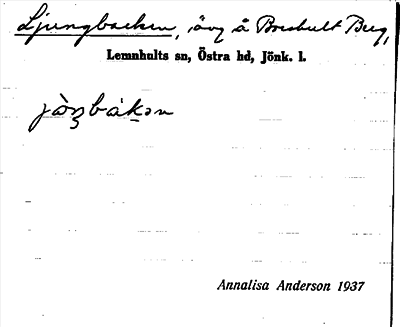 Ljungbacken, övg å Boeshult Berg,
Lemnhults sn, Östra hd, Jönk. l.
Annalisa Anderson 1937